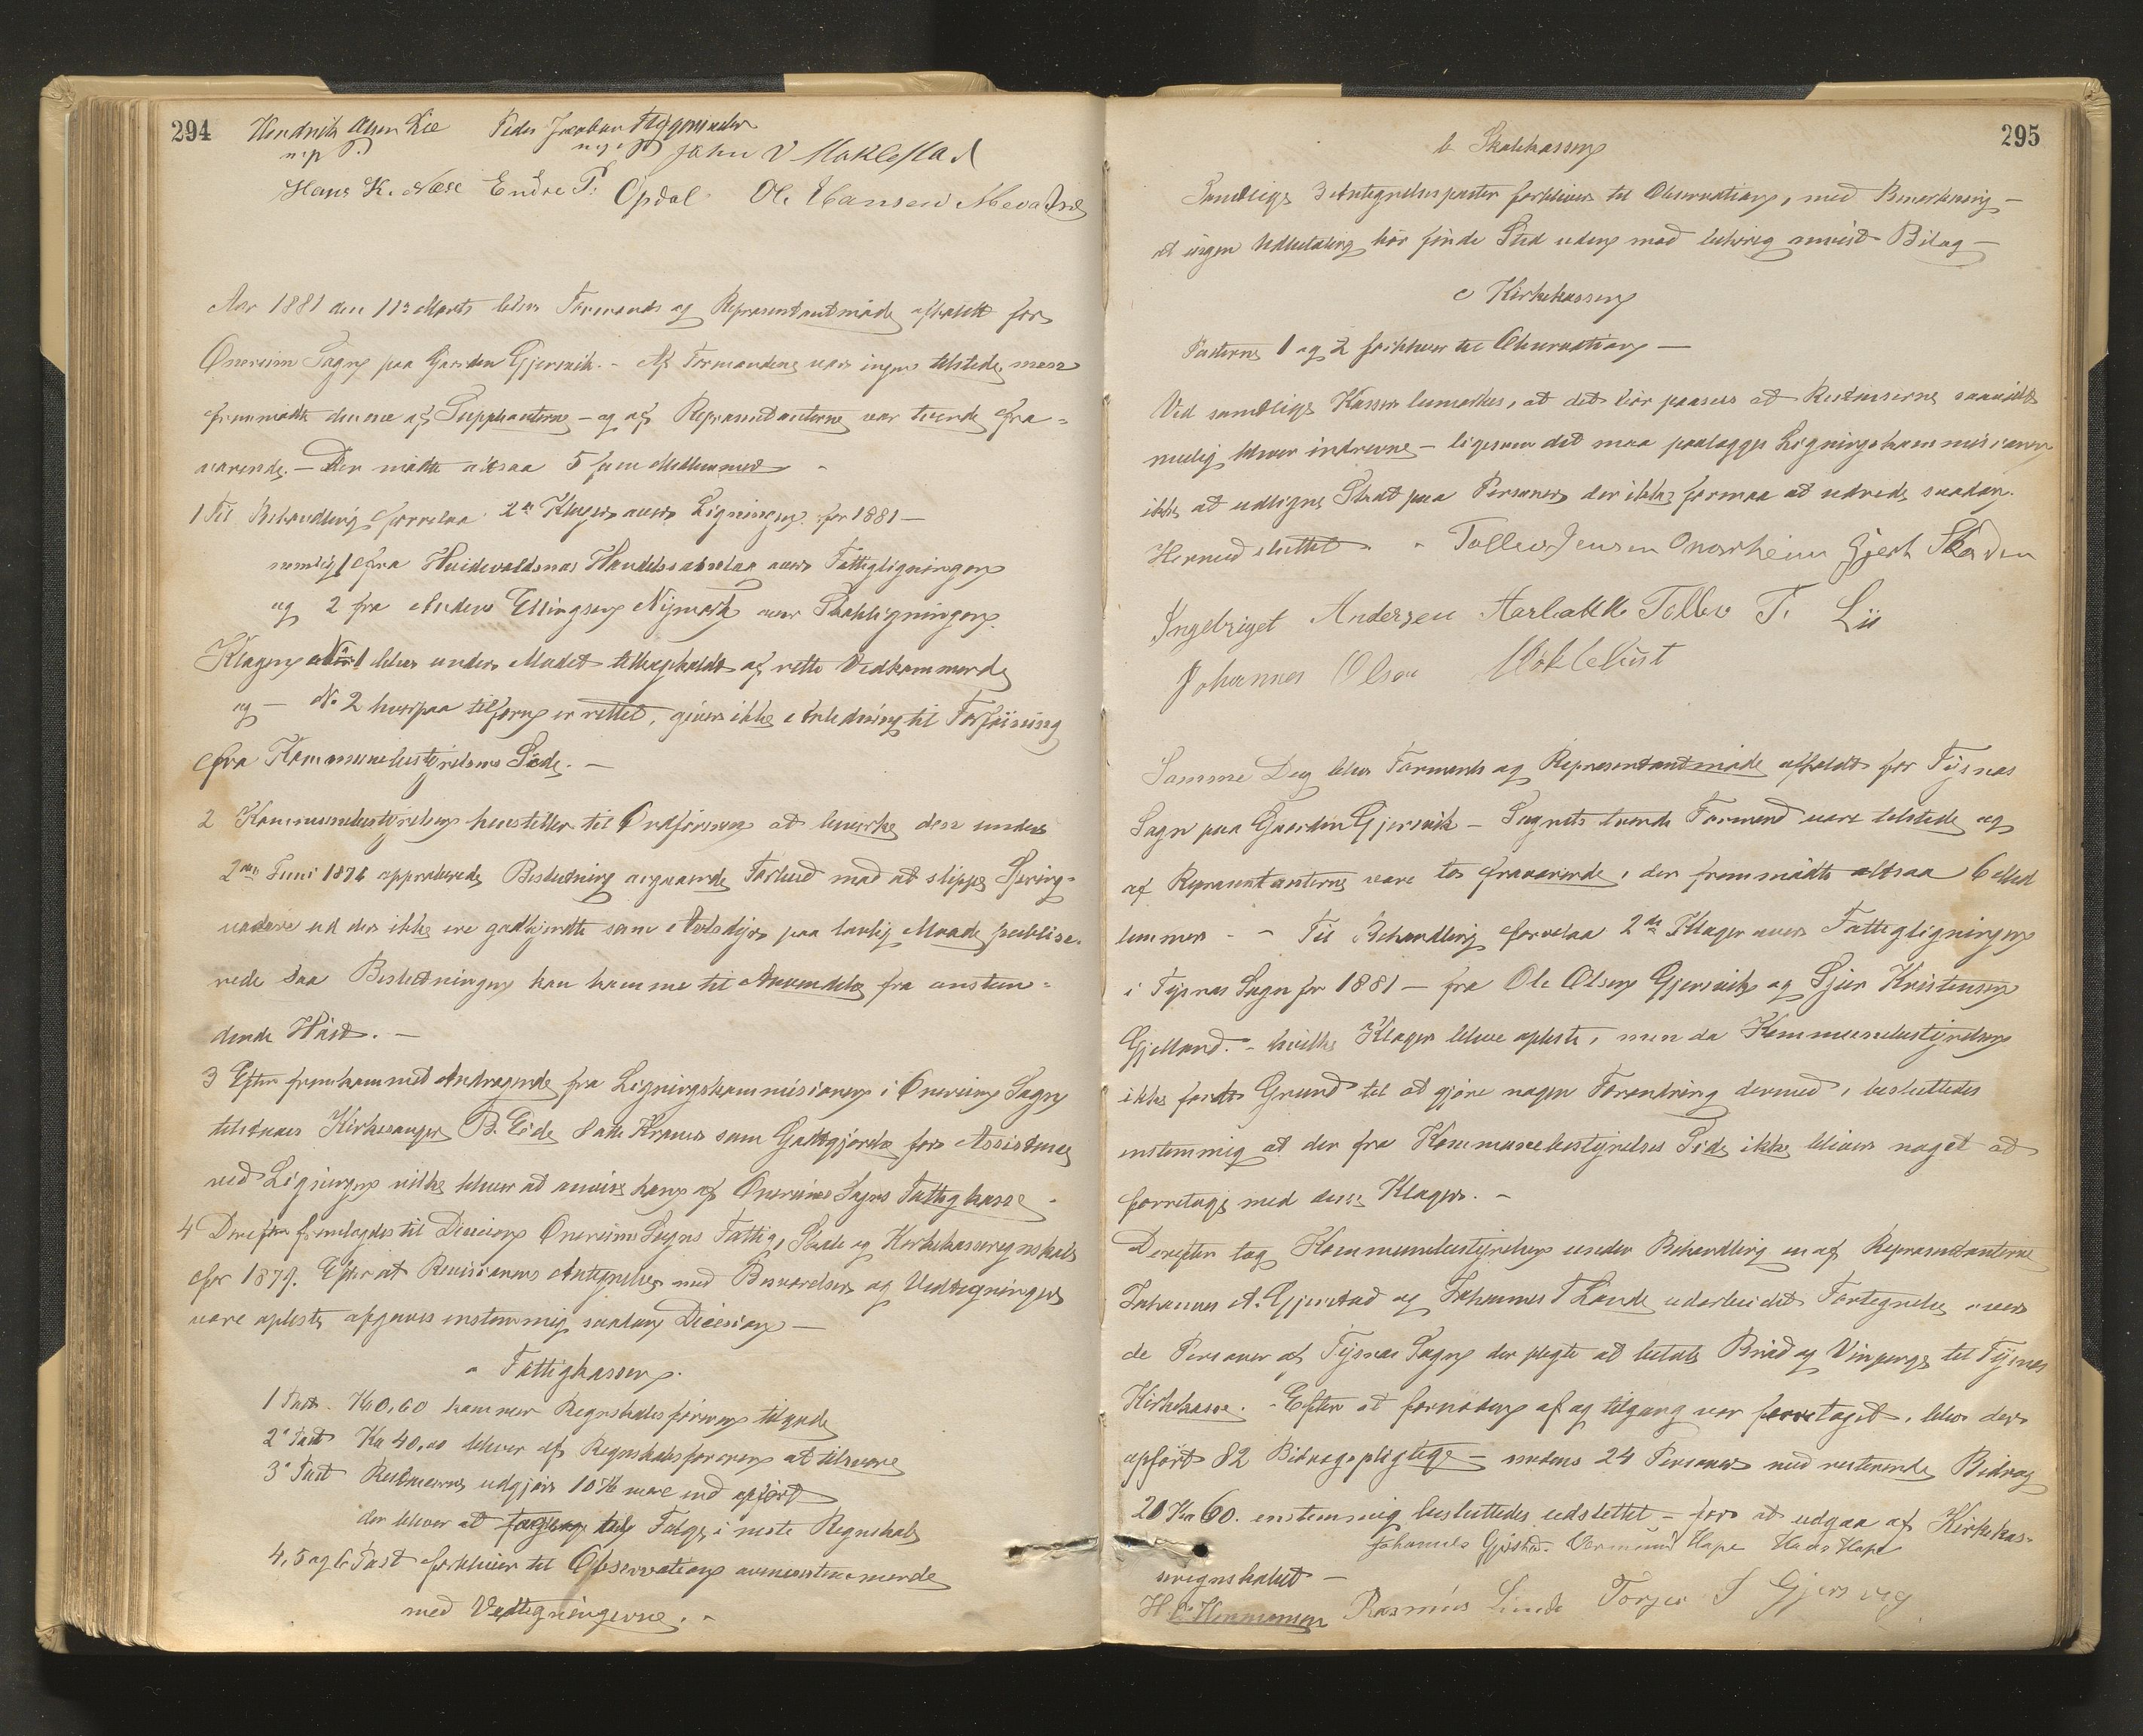 294
Hendrik Olsen Lie Peder Jacobsen Flygansvær
m.p.P. m.p.P. John V Møklestad
Hans K. Næse Endre P. Opdal Ole Hansen Mevatne
Aar 1881 den 11te Marts blev Formands og Repræsentantmøde afholdt for
Onereim Sogn paa Gaarden Gjersvik. - Af Formændene var ingen tilstede, men
fremmødte denne af Suppleanterne - og af Repræsentanterne var tvende fra-
værende. - Der mødte altsaa 5 fem Medlemmer -
1 Til Behandling forelaa 2de Klager over Ligningen for 1881 -
nemlig 1 fra Huidevoldsnes Handelssabselaa over Fattigligningen
og 2 fra Anders Ellingsen Nymark over Skoleligningen.
Klagen No 1 blev under Mødet tilbageholdt af rette Vedkommende
og - No 2 hvorpaa tilforn er rettet, giver ikke Anledning til Forføining
fra Kommunebestyrelsens Side. -
2 Kommunebestyrelsen henstiller til Ordføreren at bevirke den under
2den Juni 1876 approberede Beslutning angaaende Forbud mod at slippe Spring-
vædere ud der ikke ere godkjendte som Avlsdyr paa lovlig Maade publice-
rede saa Beslutningen kan komme til Anvendelse fraansten-
dende Høst. -
3 Efter fremkommet Andragende fra Ligningskommissionen i Onereim Sogn
tilstaaes Kirkesanger B. Eide 8 otte Kroner som Godtgjørelse for Assistance
ved Ligningen hvilke bliver at anvise ham af Onereims Sogns Fattigkasse -
4 Derefter fremlagdes til Decision Onereims Sogns Fattig, Skole og Kirkekasseregnskab
for 1879. Efter at Revisionens Antegnelser med Besvarelser og Vedtegninger
vare oplæste afgaves enstemmig saadan Decision -
a Fattigkassen.
1 Post. Kr 0,60 kommer Regnskabsføreren tilgode
2 Post Kr 40,00 bliver af Regnskabsføreren at tilsvare
3 Post Restancerne udgjør 10 Kr mere end opført
der bliver at Følge i neste Regnskab
4, 5 og 6 Post forbliver til Observation overensstemmende
med Vedtegningerne. -
295
b Skolekassen
Samtlige 3 Antegnelsesposter forbliver til Observation, med Bemærkning -
at ingen Udbetaling bør finde Sted uden mod behørig anvist Bilag -
c Kirkekassen
Posterne 1 og 2 forbliver til Observation -
Ved samtlige Kasser bemærkes, at det bør paasees at Restancerne saavidt
mulig bliver inddrevne - ligesom det maa paalægges Ligningskommissionen
ikke at udligne Skat paa Personer der ikke formaa at udrede saadan.
Hermed sluttet - - Tollev Jensen Onarheim Gjert Skaden
Ingebrigt Andersen Aarbakke Tollev T. Lii
Johannes Olson Møklebust
Samme Dag blev Formands og Repræsentantmøde afholdt for Tysnæs
Sogn paa Gaarden Gjersvik - Sognets tvende Formænd vare tilstede og
af Repræsentanterne vare to fraværende, der fremmødte altsaa 6 Med
lemmer - - Til Behandling forelaa 2de Klager over Fattigligningen
i Tysnæs Sogn for 1881 - fra Ole Olsen Gjersvik og Sjur Kristensen
Gjelland. - hvilke Klager bleve oplæste, men da Kommunebestyrelsen
ikke fandt Grund til at gjøre nogen Forandring dermed, besluttedes
enstemmig at der fra Kommunebestyrelsens Side ikke bliver noget at
forretage med disse Klager. -
Derefter tog Kommunebestyrelsen under Behandling en af Repræsentanterne
Johannes A. Gjerstad og Johannes T Lande udarbeidet Fortegnelse over
de Personer af Tysnæs Sogn der pligte at betale Brød og Vinpenge til Tysnæs
Kirkekasse. - Efter at fornøden af og tilgang var forretaget, blev der
opført 82 Bidragspligtige - medens 24 Personer med resterende Bidrag
20 Kr 60. enstemmig besluttedes udslettet - for at udgaa af Kirkekas-
Johannes Gjerstad. Vermund Hope Hans Hope
seregnskabet -
H C Hermansen Rasmus Lunde Torger S Gjersvig